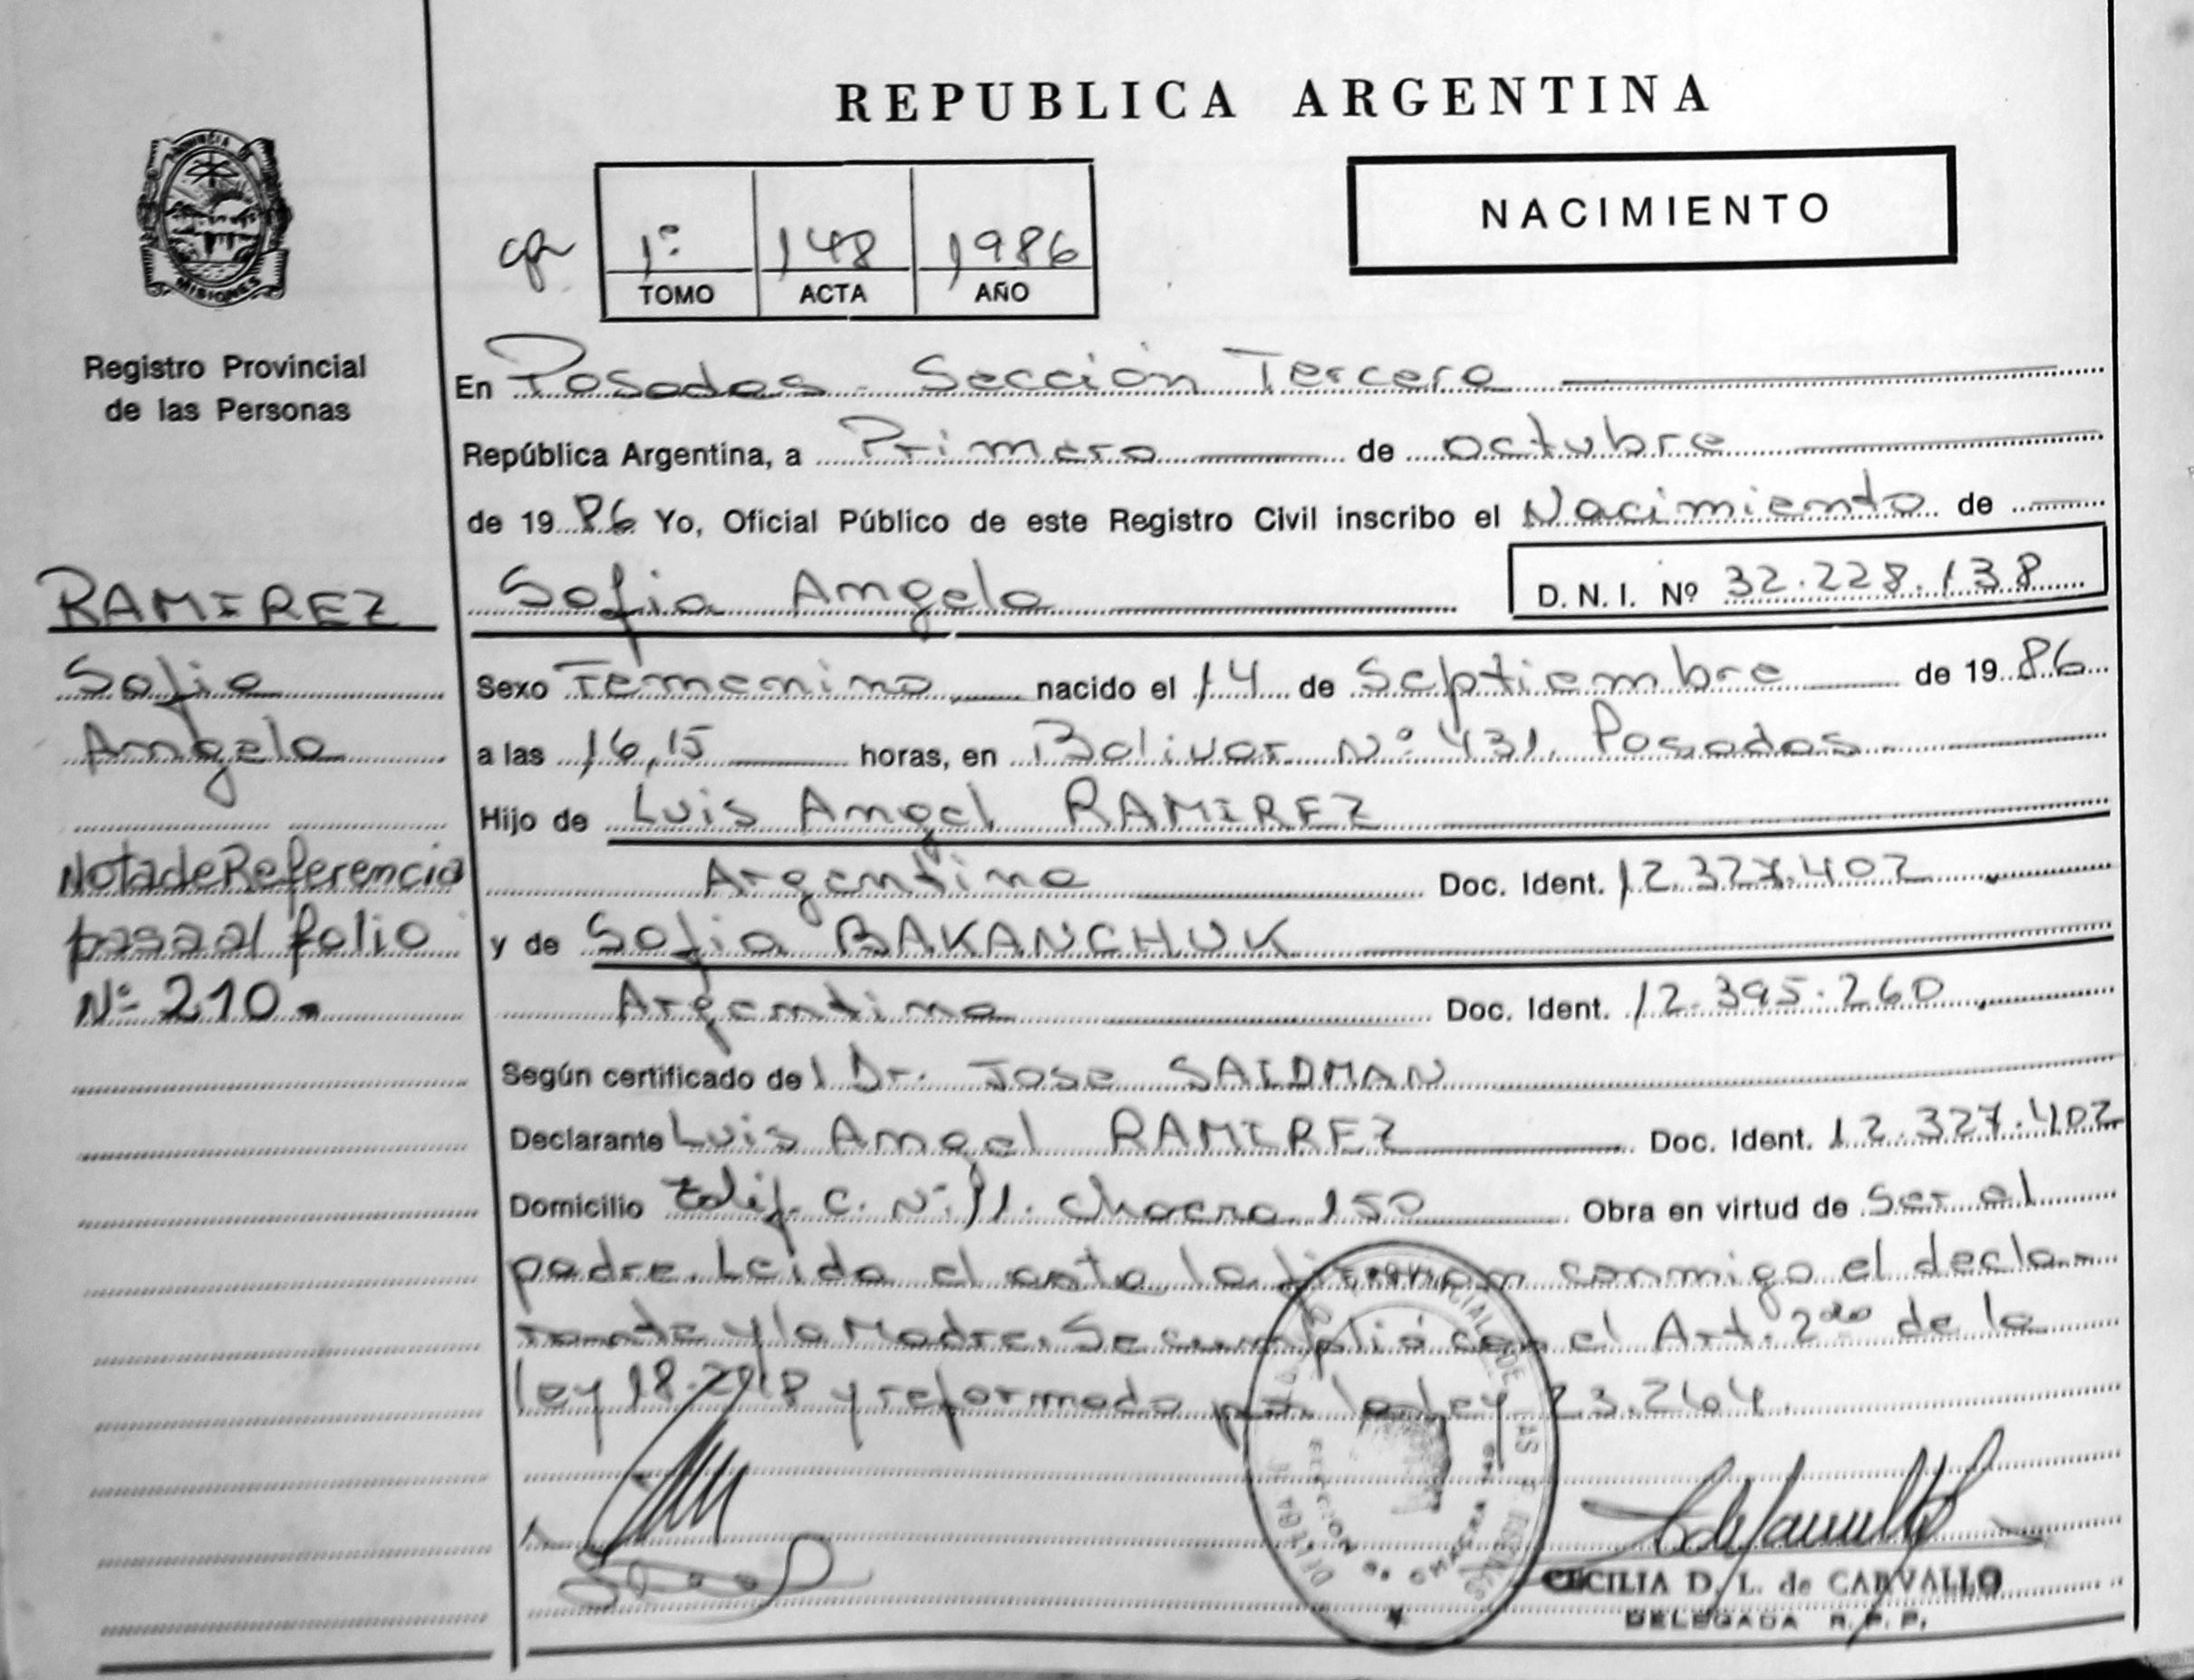 REPUBLICA ARGENTINA
PROVINCIA DE
MISIONES
Registro Provincial
de las Personas
1º 148 1986
TOMO ACTA AÑO
NACIMIENTO
En Posadas - Sección Tercera
República Argentina, a Primero de octubre
de 1986 Yo, Oficial Público de este Registro Civil inscribo el Nacimiento de
Sofia Angela D. N. I. Nº 32.228.138
RAMIREZ
Sofia
Angela
Nota de Referencia
pasa al folio
Nº 210.
Sexo Femenino nacido el 14 de Septiembre de 1986
a las 16,15 horas, en Bolivar Nº 431. Posadas
Hijo de Luis Angel RAMIREZ
Argentino Doc. Ident. 12.327.402
y de Sofia BAKANCHUK
Argentina Doc. Ident. 12.395.260
Según certificado del Dr. Jose SAIDMAN
Declarante Luis Angel RAMIREZ Doc. Ident. 12.327.402
Domicilio Edif. C. Nº 11. Chacra 150 Obra en virtud de Ser el
padre. Leida el acta la firman conmigo el decla-
rante y la Madre. Se cumplió con el Art. 2do de la
ley 18.248 y reformado por la ley 23.264.
CECILIA D. L. de CARVALLO
DELEGADA R. P. P.